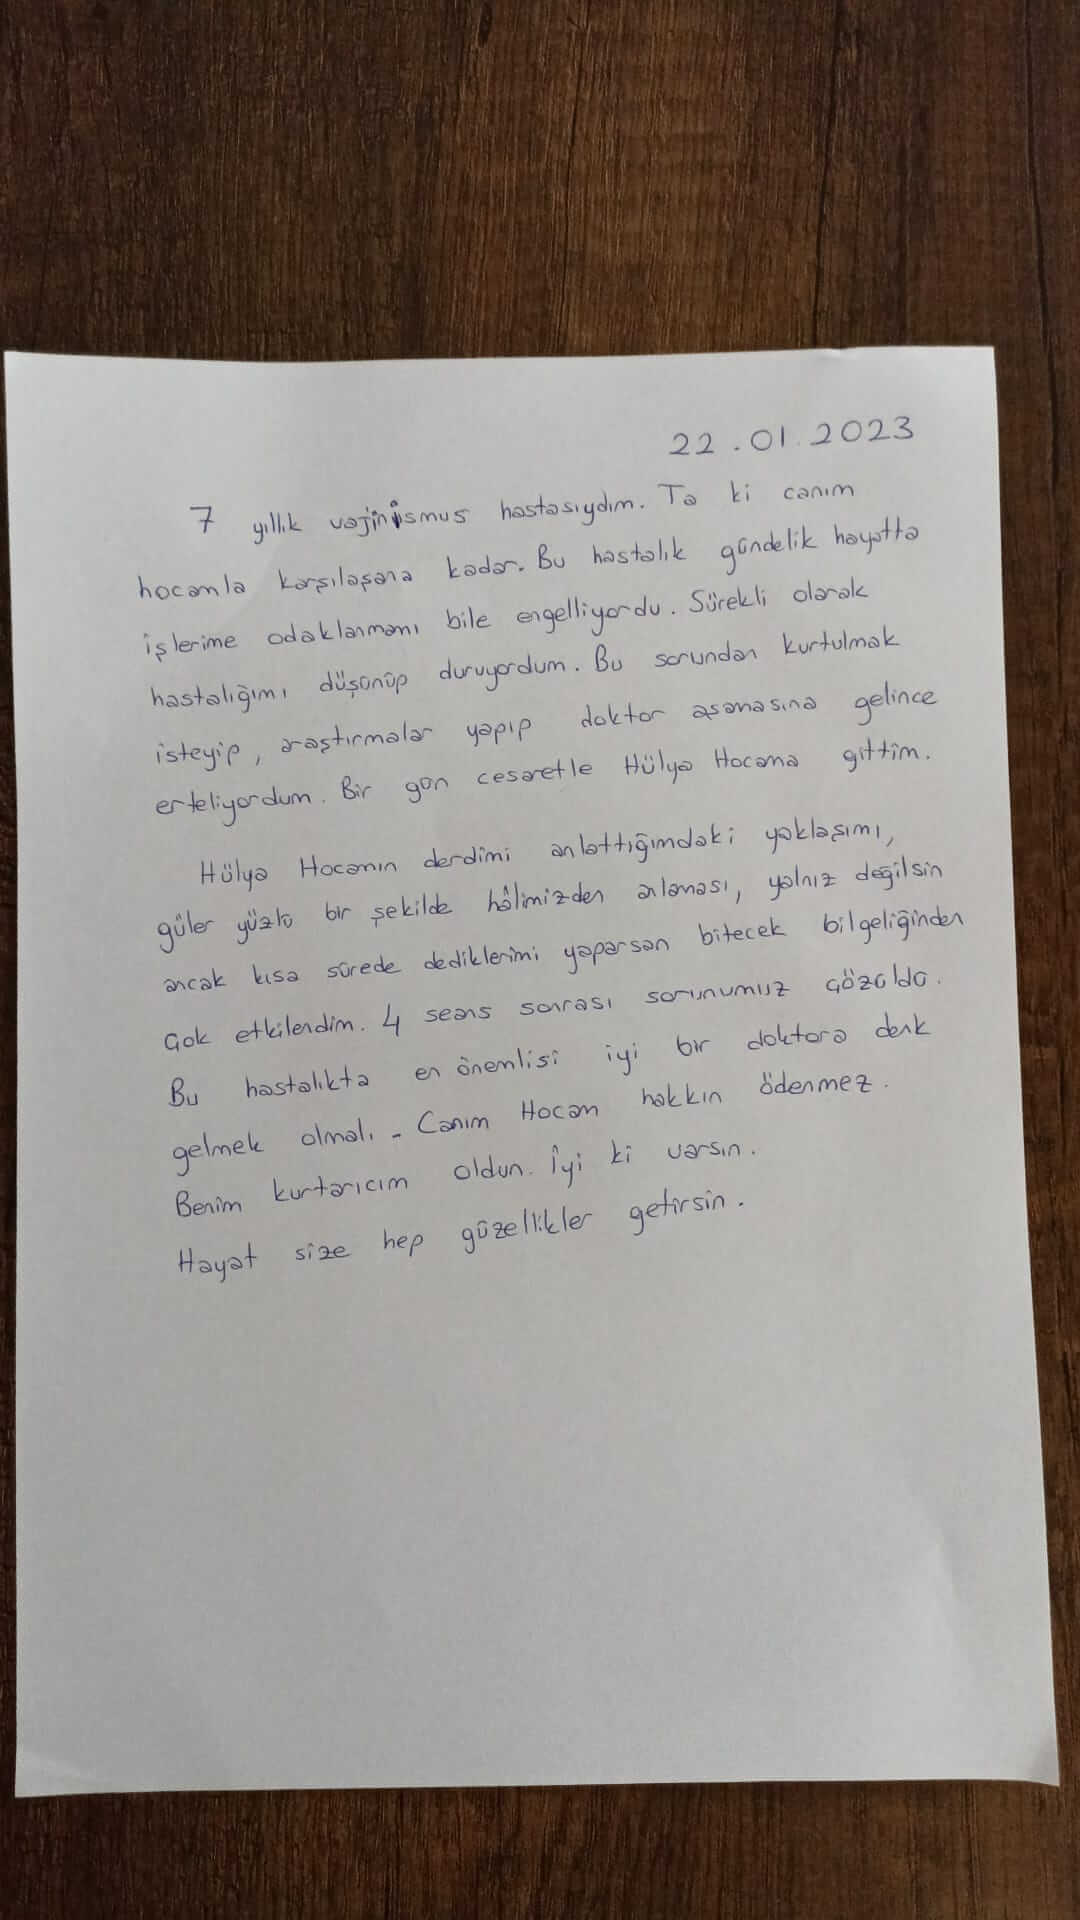 22.01.2023
7 yıllık vajinismus hastasıydım. Ta ki canım
hocamla karşılaşana kadar. Bu hastalık gündelik hayatta
işlerime odaklanmamı bile engelliyordu. Sürekli olarak
hastalığımı düşünüp duruyordum. Bu sorundan kurtulmak
isteyip, araştırmalar yapıp doktor aşamasına gelince
erteliyordum. Bir gün cesaretle Hülya Hocama gittim.
Hülya Hocamın derdimi anlattığımdaki yaklaşımı,
güler yüzlü bir şekilde hâlimizden anlaması, yalnız değilsin
ancak kısa sürede dediklerimi yaparsan bitecek bilgeliğinden
çok etkilendim. 4 seans sonrası sorunumuz çözüldü.
Bu hastalıkta en önemlisi iyi bir doktora denk
gelmek olmalı. Canım Hocam hakkın ödenmez.
Benim kurtarıcım oldun. İyi ki varsın.
Hayat size hep güzellikler getirsin.